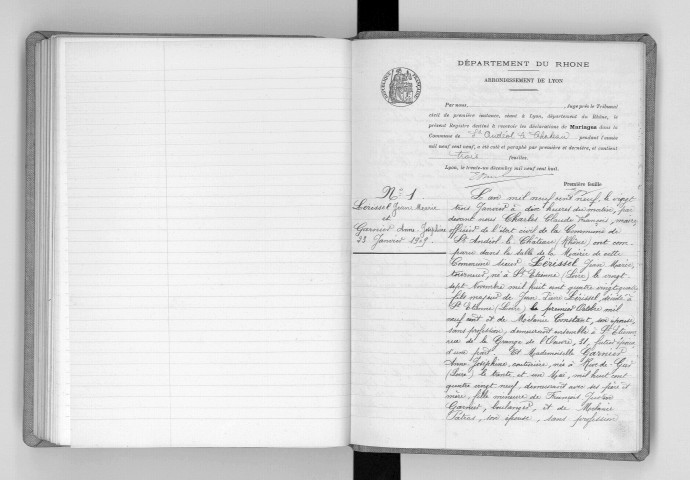 DÉPARTEMENT DU RHONE
ARRONDISSEMENT DE LYON
RÉPUBLIQUE FRANÇAISE
Par nous, Juge près le Tribunal
civil de première instance, séant à Lyon, département du Rhône, le
présent Registre destiné à recevoir les déclarations de Mariages dans la
Commune de St Andéol le Château pendant l'année
mil neuf cent neuf, a été coté et paraphé par première et dernière, et contient
feuilles.
Lyon, le trente-un décembre mil neuf cent huit.
Première feuille
No 1
Lérissel Jean Marie
et
Garnier Anne Joséphine
23 Janvier 1909.
L'an mil neuf cent neuf, le vingt
trois Janvier à dix heures du matin, par
devant nous Charles Claude François, maire
officier de l'état civil de la Commune de
St Andéol le Château (Rhône) ont com-
paru dans la salle de la Mairie de cette
Commune sieur Lérissel Jean Marie
tourneur, né à St Etienne (Loire) le vingt
sept Novembre mil huit cent quatre vingt quatre
fils majeur de Jean Pierre Lérissel, décédé à
St Etienne (Loire) le premier Octobre mil
neuf cent et de Mélanie Constant, son épouse,
sans profession, demeurant ensemble à St Etienne,
rue de la Grange de l'Oeuvre, 21, futur époux
d'une part. Et Mademoiselle Garnier
Anne Joséphine, couturière, née à Rive-de-Gier
(Loire) le trente et un Mai, mil huit cent
quatre vingt neuf, demeurant avec ses père et
mère, fille mineure de François
Garnier, boulanger, et de
son épouse, sans profession